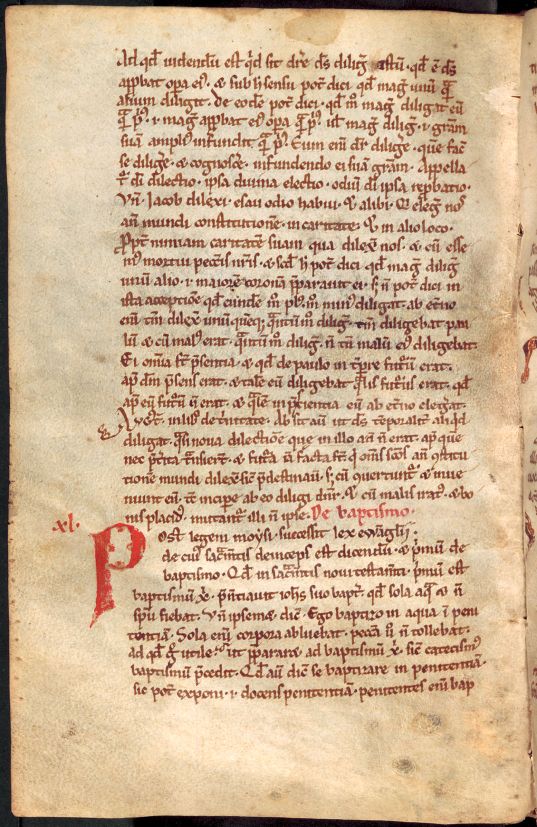 Ad qđ uidendū est qd sit dr̄e ds̄ diliḡ istū. qđ ē ds̄
app̄bat opa eī. & sub h sensu pot̄ dici qđ maḡ unū q̄
alium diligit. de eodē pot̄ dici. qđ m̄ maḡ diligat eū
maḡ app̄bat eī opa maḡ diliḡ. gr̄am
suā amplī infundit Eum eni dr̄ diliḡe. que fac̄
se diliḡe. & cognosc̄e. infundendo ei suā gr̄am. Appella
t̄ dī dilectio. ipsa diuina electio. odiū dī ipsa rep̄batio.
Vn̄. Jacob dilexi. esau odio habui. & alibi. Q eleḡ nos
an̄ mundi constitutionē. in caritate. & in alio loco.
Ppt̄ nimiam caritatē suam qua dilex̄ nos. & cū esse
mī mortui pecc̄is nr̄is. & scd̄ h pot̄ dici qđ maḡ diliḡ
unū alio. maiorē coronā p̄parauit ei. s; n̄ pot̄ dici in
ista acceptiōe qđ eundē m̄ diligat. ab et̄no
diliḡ. tm̄ diligebat pau
lū & cū malī erat. diliḡ. n̄ tm̄ malū eī diligebat.
Ei om̄ia st̄ p̄sentia. & qđ de paulo in t̄pre futūrū erat.
ap̄ dīm p̄sens erat. & tale eū diligebat. q̄lis futūrus erat. qđ
ap̄ eū futūrū n̄ erat. & in p̄scientia eū ab et̄no eleḡat.
Auḡ. in lib̄ de t̄nitate. Absit aū ut ds̄ tēporalit̄ aliq̄d
diligat. q̄si noua dilectiōe que in illo an̄ n̄ erat. ap̄ quē
nec p̄t̄ita t̄nsier̄t. & futūra iā facta st̄. om̄s sc̄os an̄ c̄stitu
tionē mundi dilex̄ sic̄ p̄destinaū. s; cū cūertunt̄. & inue
niunt eū. t̄c incipe ab eo diligi dn̄r. & cū malis & bo
nis placid̄. mutant̄ illi n̄ ipse. De baptismo.
xl.
Post legem moysi. successit lex ew̄aglii.
de cuī sac̄m̄tis deinceps est dicendū. & p̄mū de
baptismo. Qđ in sac̄m̄tis noui testam̄ti. p̄mū est
baptismū x̄. p̄nt̄iauit ioh̄s suo bapt̄. qđ sola aq̄ & n̄
sp̄u fiebat. Vn̄ ipsemet dic̄. Ego baptizo in aqua ī peni
tentiā. Sola eni corpora abluebat. pecc̄a ū n̄ tollebat.
ad qđ ḡ utile ut p̄pararet ad baptismū x̄. sic̄ catecismī
baptismū p̄cedit. Qđ aū dic̄ se baptizare in penitentiā.
sic pot̄ exponi. docens penitentiā. penitentes eni bap